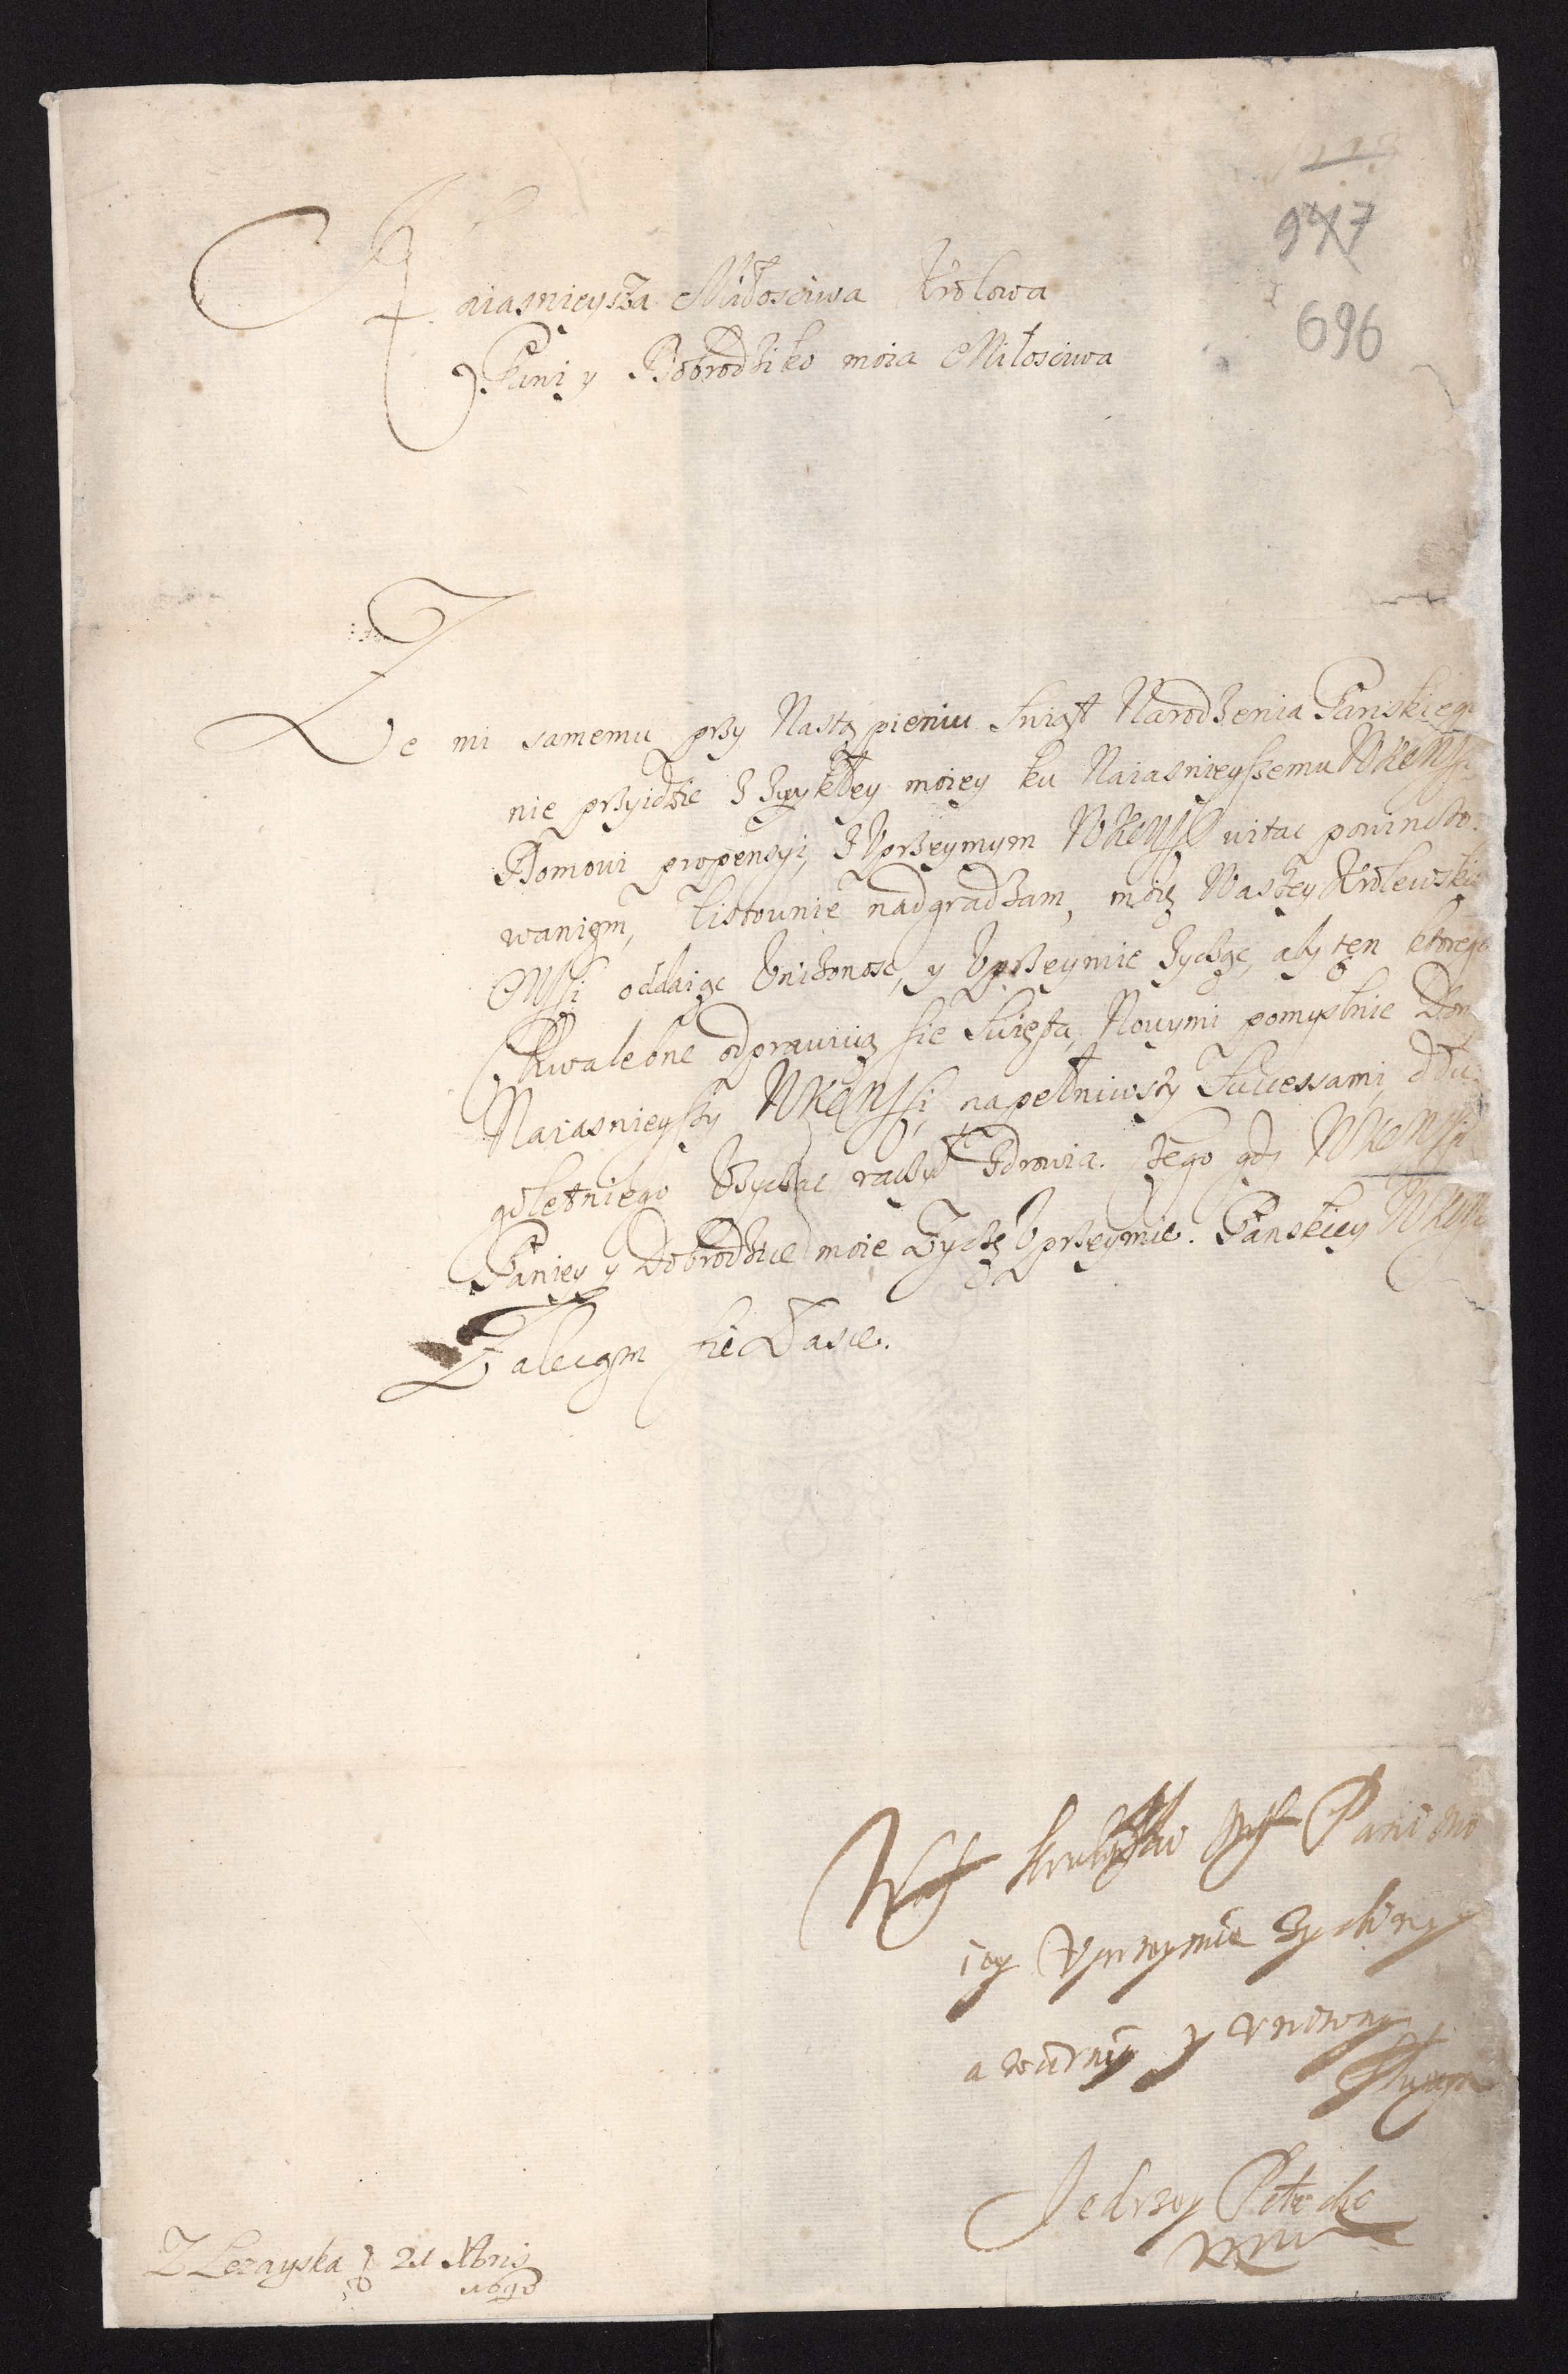 947
696
Naiasnieysza Miłosciwa Krolowa
Pani y Dobrodziko moia Miłosciwa
Ze mi samemu przy Nastąpieniu Swiąt Narodzenia Panskiego
nie przyidzie z zwykłey moiey ku Naiasnieyszemu WKeMsci
Domowi propensyi, z Uprzeymym WKeMsci witac powinszo-
waniem, listownie nadgradzam, moię Waszey Krolewskiey
Msci oddaiąc Unizonosc, y Uprzeymie zycząc, aby ten ktorego
Chwalebne odprawuią sie Swięta, Nowymi pomyslnie Dom
Naiasnieyszy WKeMsci, napełniwszy Successami, dłu-
goletniego Uzyczac raczył Zdrowia. Zego gdy WKeMsci
Paniey y Dobrodzice moie Zyczę Uprzeymie. Panskiey WKeM
Zalecam sie Łasce.
Pani mo
iey Uprzeymie zycliwy
a wierny y Unizony
Sługa
Jedrzey Potocki
Z Lezayska d 21 Xbris
1690